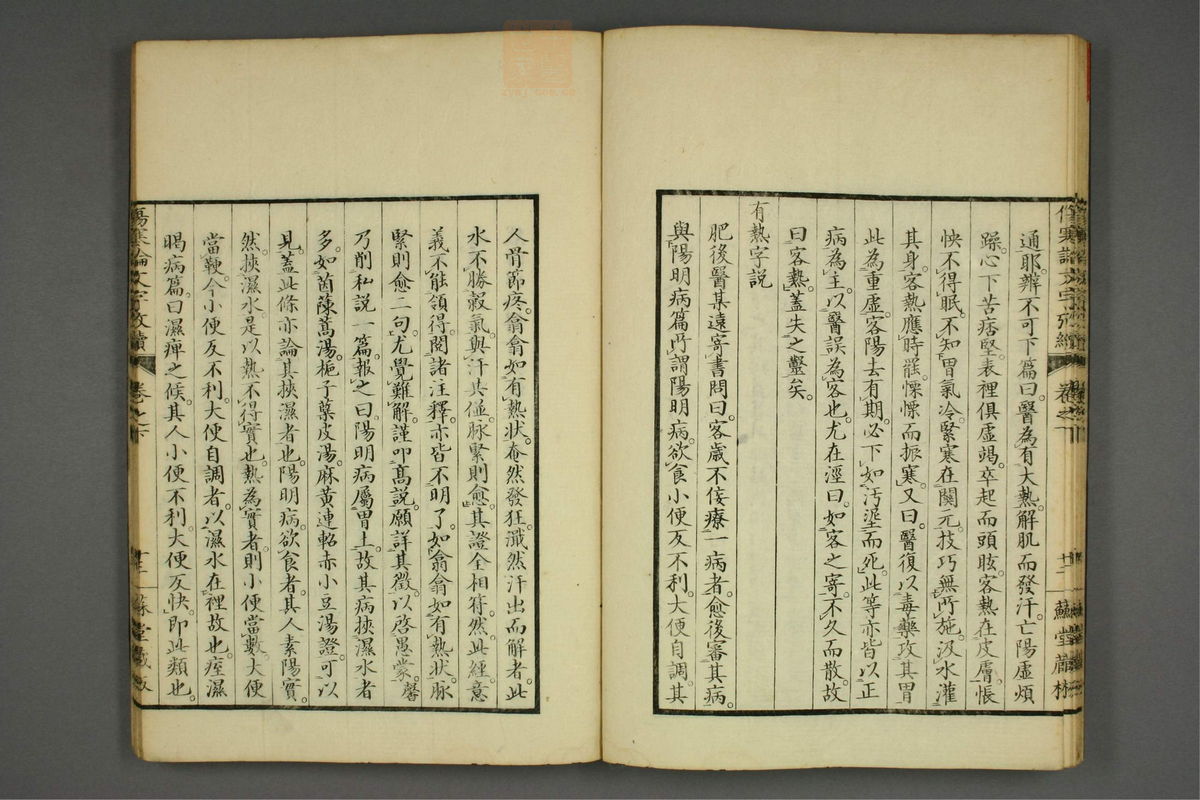 通耶。辨不可下篇曰。醫為有大熱。解肌而發汗。亡陽虛煩
躁。心下苦痞堅。表裡俱虛竭。卒起而頭眩。客熱在皮膚。悵
怏不得眠。不知胃氣冷。緊寒在關元。技巧無所施。汲水灌
其身。客熱應時罷。慄慄而振寒。又曰。醫復以毒藥攻其胃。
此為重虛。客陽去有期。必下如汚泥而死。此等亦皆以正
病為主。以醫誤為客也。尤在涇曰。如客之寄。不久而散。故
曰客熱。蓋失之鑿矣。
有熱字說
肥後醫某遠寄書問曰。客歲不佞療一病者。愈後審其病。
與陽明病篇所謂陽明病。欲食小便反不利。大便自調。其
人骨節疼。翕翕如有熱狀。奄然發狂。濈然汗出而解者。此
水不勝穀氣。與汗共併。脈緊則愈。其證全相符。然此經意
義不能領得。閱諸注釋。亦皆不明了。如翕翕如有熱狀。脈
緊則愈二句。尤覺難解。謹叩高說。願詳其徵。以啓愚蒙。馨
乃削私說一篇。報之曰。陽明病屬胃土。故其病挾濕水者
多。如茵蔯蒿湯。梔子蘗皮湯。麻黃連軺赤小豆湯證。可以
見。蓋此條亦論其挾濕者也。陽明病。欲食者。其人素陽實。
然挾濕水。是以熱不得實也。熱為實者。則小便當數。大便
當鞕。今小便反不利。大便自調者。以濕水在裡故也。痙濕
暍病篇曰。濕痺之候。其人小便不利。大便反快。即此類也。
傷寒論文字攷續
卷之下